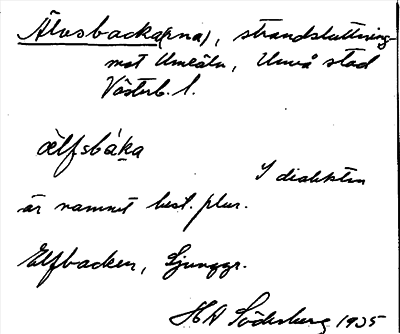 Älvsbacka(rna), strandsluttning
mot Umeälv, Umeå stad
Västerb. l.
ælfsbáka
I dialekten
är namnet best. plur.
Elfbacken, Ljunggr.
HA Söderberg 1935